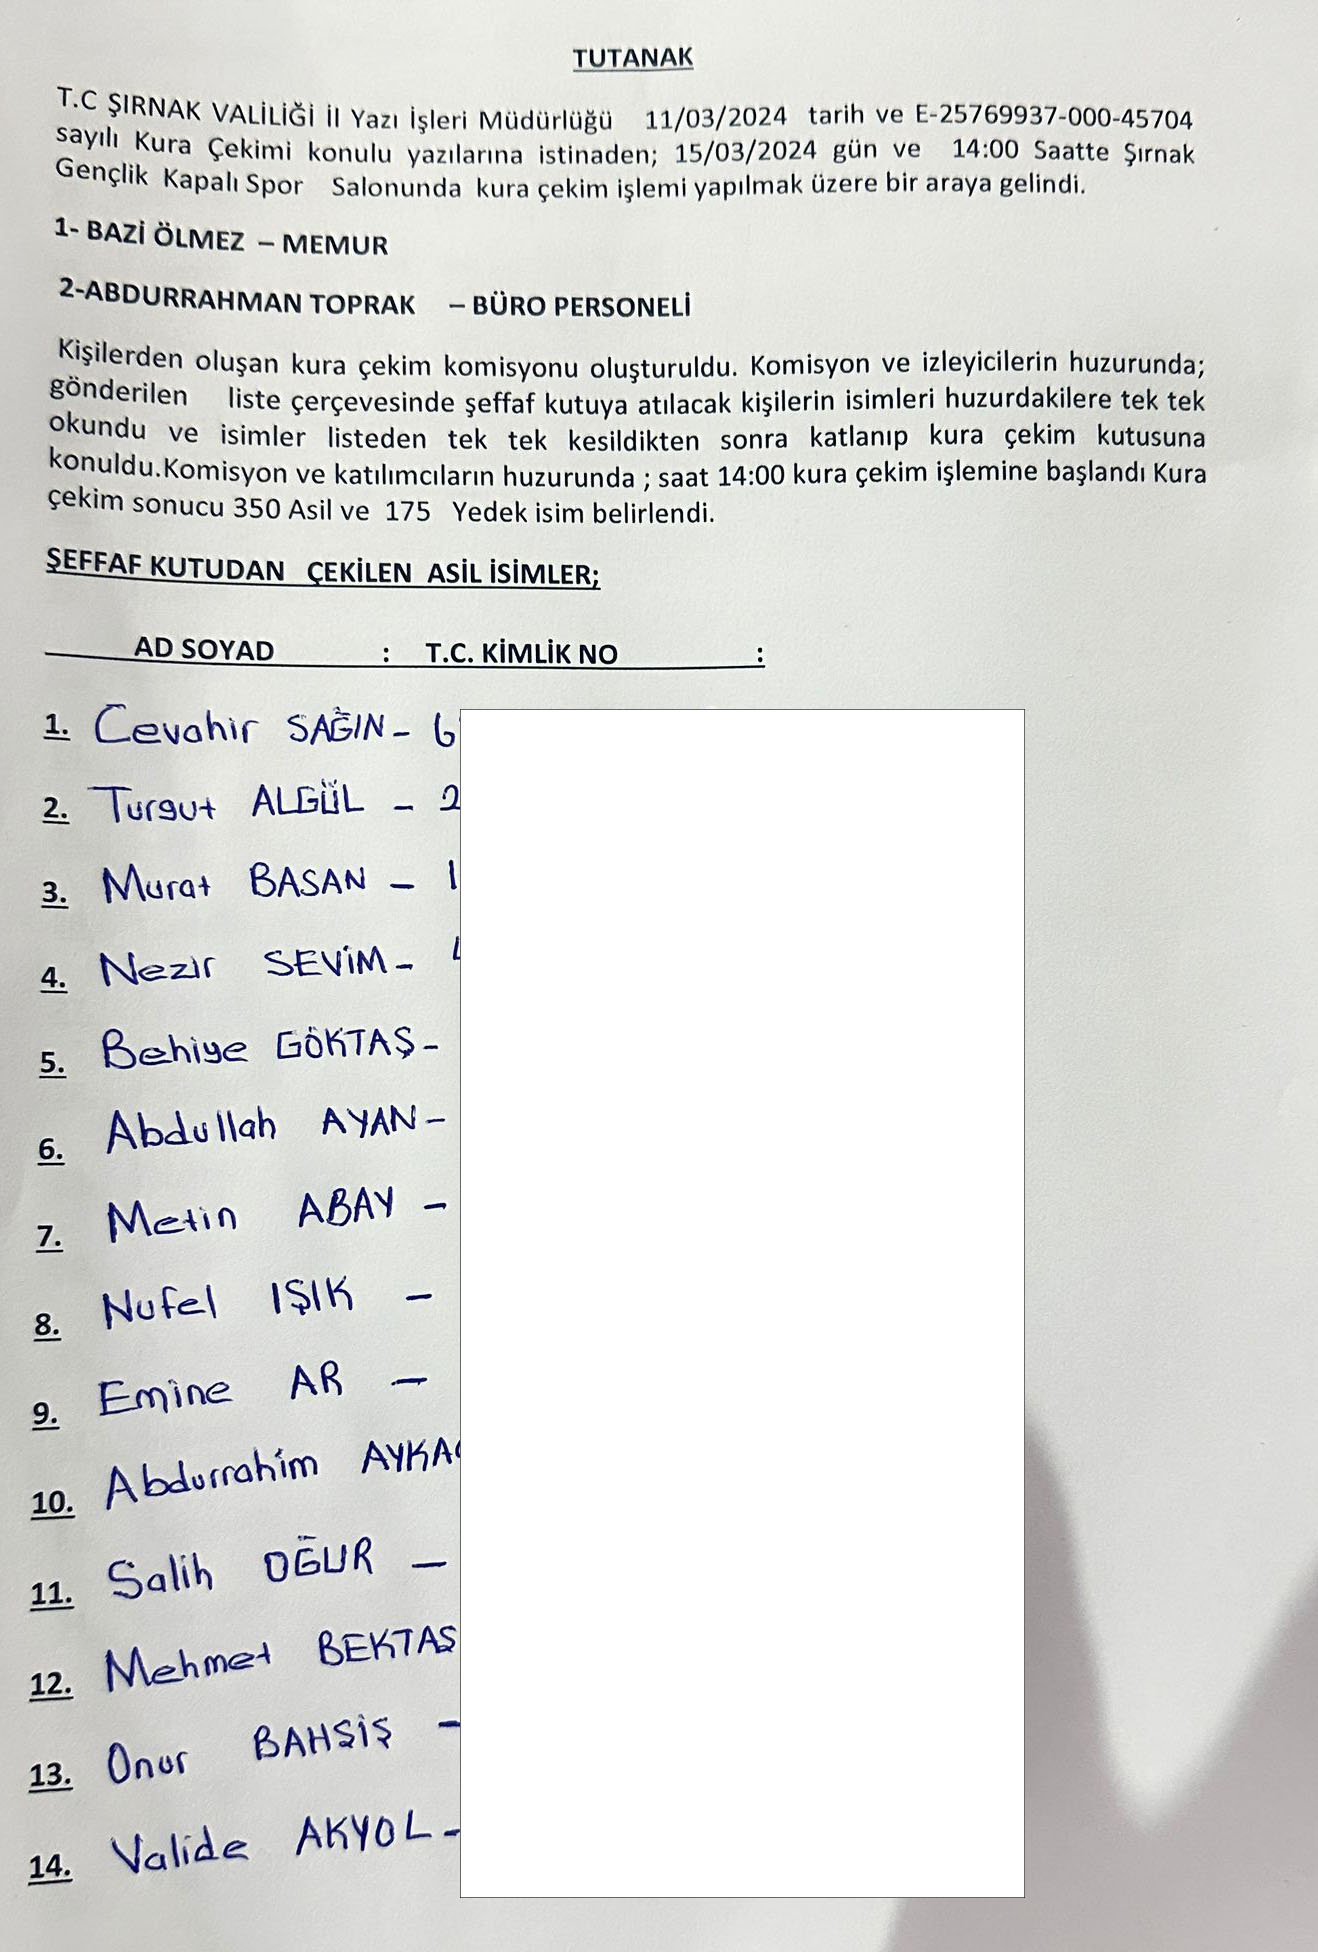 TUTANAK
T.C ŞIRNAK VALİLİĞİ İl Yazı İşleri Müdürlüğü 11/03/2024 tarih ve E-25769937-000-45704
sayılı Kura Çekimi konulu yazılarına istinaden; 15/03/2024 gün ve 14:00 Saatte Şırnak
Gençlik Kapalı Spor Salonunda kura çekim işlemi yapılmak üzere bir araya gelindi.
1- BAZİ ÖLMEZ – MEMUR
2-ABDURRAHMAN TOPRAK – BÜRO PERSONELİ
Kişilerden oluşan kura çekim komisyonu oluşturuldu. Komisyon ve izleyicilerin huzurunda;
gönderilen liste çerçevesinde şeffaf kutuya atılacak kişilerin isimleri huzurdakilere tek tek
okundu ve isimler listeden tek tek kesildikten sonra katlanıp kura çekim kutusuna
konuldu.Komisyon ve katılımcıların huzurunda ; saat 14:00 kura çekim işlemine başlandı Kura
çekim sonucu 350 Asil ve 175 Yedek isim belirlendi.
ŞEFFAF KUTUDAN ÇEKİLEN ASİL İSİMLER;
AD SOYAD : T.C. KİMLİK NO :
1. Cevahir SAĞIN - 6
2. Turgut ALGÜL - 2
3. Murat BASAN - 1
4. Nezir SEVİM -
5. Behiye GÖKTAŞ -
6. Abdullah AYAN -
7. Metin ABAY -
8. Nufel IŞIK -
9. Emine AR -
10. Abdurrahim
11. Salih OĞUR -
12. Mehmet BEKTAŞ
13. Onur BAHŞİŞ -
14. Valide AKYOL -